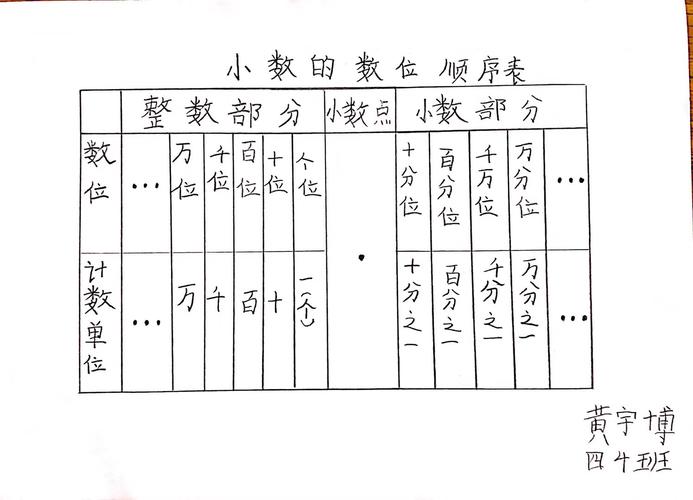 小数的数位顺序表
整数部分 小数点 小数部分
数位 … 万位 千位 百位 十位 个位 . 十分位 百分位 千万位 万分位 …
计数单位 … 万 千 百 十 一(个) 十分之一 百分之一 千分之一 万分之一 …
黄宇博
四4班